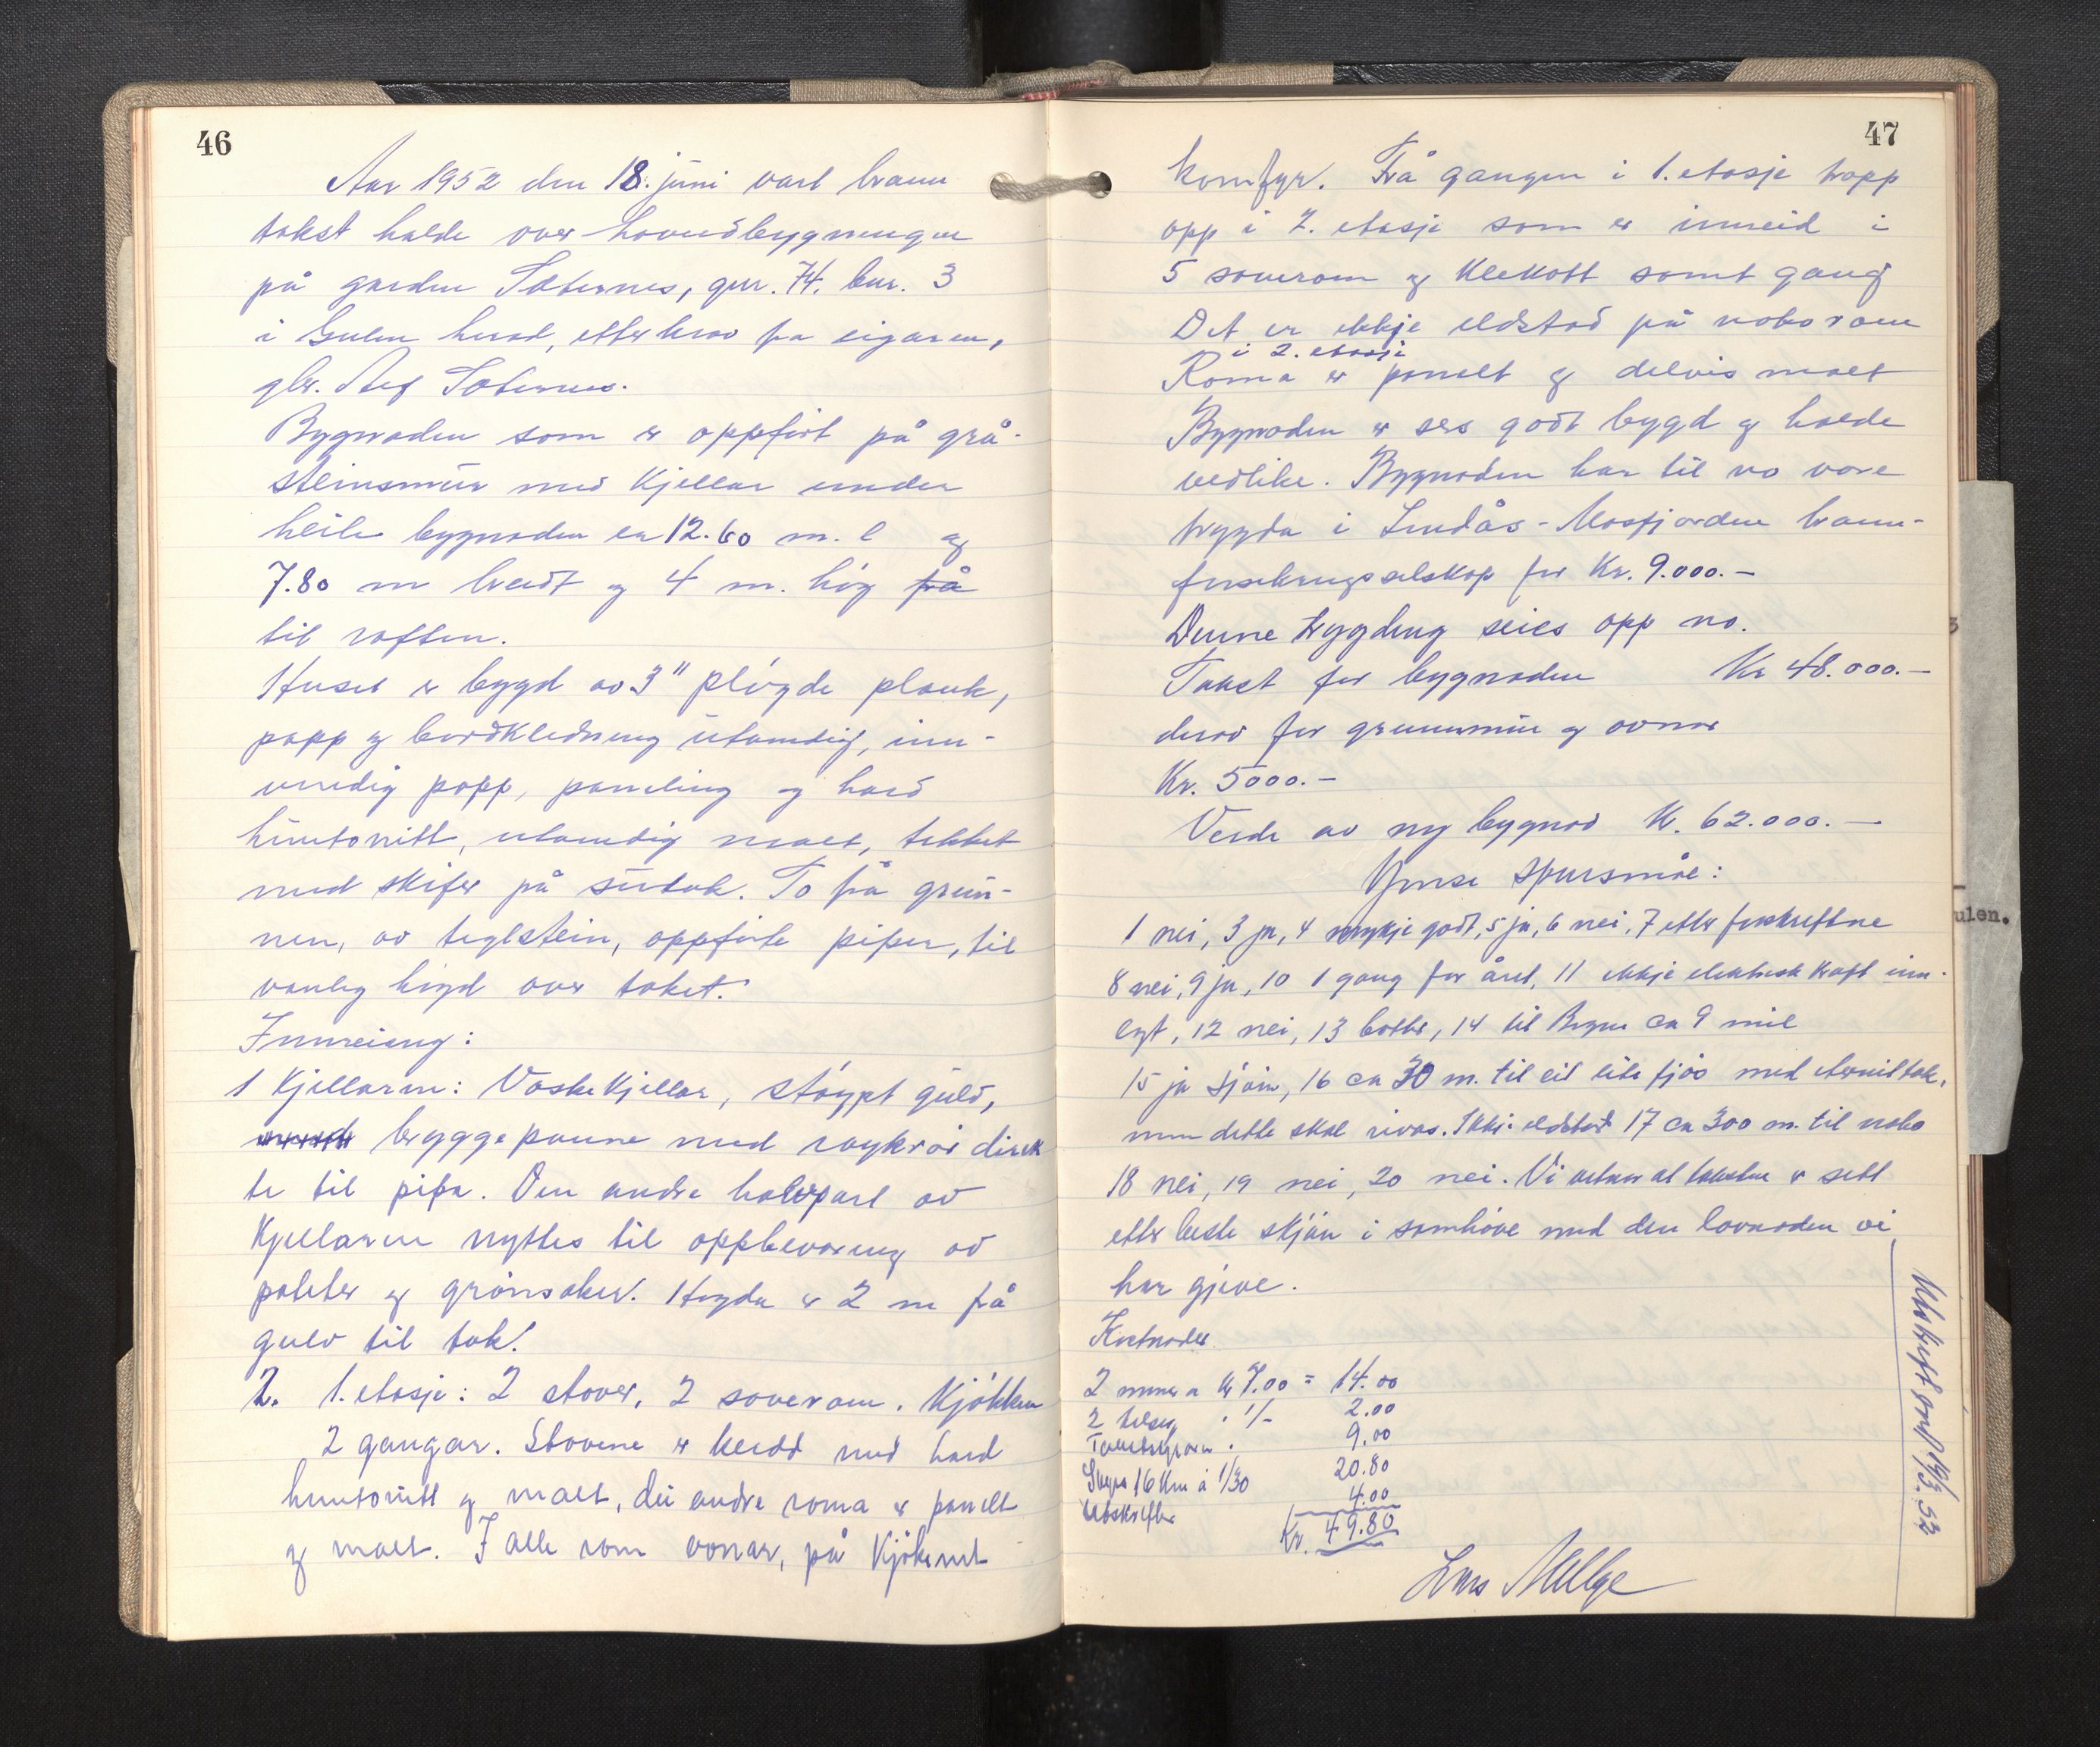 46
Aar 1952 den 18. juni vart brann
takst halde over hovudbygningen
på garden Sæternes, gnr. 74. bnr. 3
i Gulen herad, etter krav fra eigaren,
gbr. Sæternes.
Bygnaden som er oppført på grå-
steinsmur med Kjellar under
heile bygnaden er 12.60 m. l og
7.80 m breidt og 4 m. høg frå
til raften.
Huset er bygd av 3" pløgde plank,
papp og bordkledning utvendig, inn-
vendig papp, paneling og hard
huntonitt, utvendig malt, tekket
med skifer på sutak. To frå grun-
nen, av teglstein, oppførte piper, til
vanleg høgd over taket.
Innreiing:
1 Kjellaren: Vaskekjellar, støypt gulv,
bryggepanne med røykrør direk
te til pipa. Den andre halvpart av
Kjellaren nyttes til oppbevaring av
poteter og grønsaker. Høgda er 2 m frå
gulv til tak.
2. 1. etasje: 2 stover, 2 soverom. Kjøkken
2 gangar. Stovene er kledd med hard
huntonitt og malt, dei andre roma er panelt
og malt. I alle rom ovnar, på Kjøkenet
47
komfyr. Frå gangen i 1. etasje trapp
opp i 2. etasje som er innreid i
5 soverom og Klekott samt gang
Det er ikkje eldstad på noko rom
i 2. etasje
Roma er panelt og delvis malt
Bygnaden er sers godt bygd og halde
vedlike. Bygnaden har til no vore
trygda i Lindås-Masfjorden brann-
forsikringsselskap for Kr. 9.000.-
Denne trygding seies opp no.
Takst for bygnaden Kr 48.000.-
derav for grunnmur og ovnar
Kr. 5000.-
Verde av ny bygnad Kr. 62.000.-
Ymse spursmål:
1 nei, 3 ja, 4 mykje godt, 5 ja, 6 nei, 7 etter forskriftene
8 nei, 9 ja, 10 1 gang for året, 11 ikkje elektrisk kraft inn-
lagt, 12 nei, 13 bøtter, 14 til Bergen ca 9 mil
15 ja sjøen, 16 ca 30 m. til eit lite fjøs med eternittak,
men dette skal rivas. Ikkje eldstad 17 ca 300 m. til nabo
18 nei, 19 nei, 20 nei. Vi at taksten er sett
etter beste skjøn i samhøve med den lovnaden vi
har gjeve.
Kostnader
2 menn a Kr 7.00 = 14.00
2 " 1/- 2.00
" 9.00
Skyss 16 Km á 1/30 20.80
Utskrifter 4.00
Kr. 49.80
Lars
Utskrift send 19/3. 52
ulen.